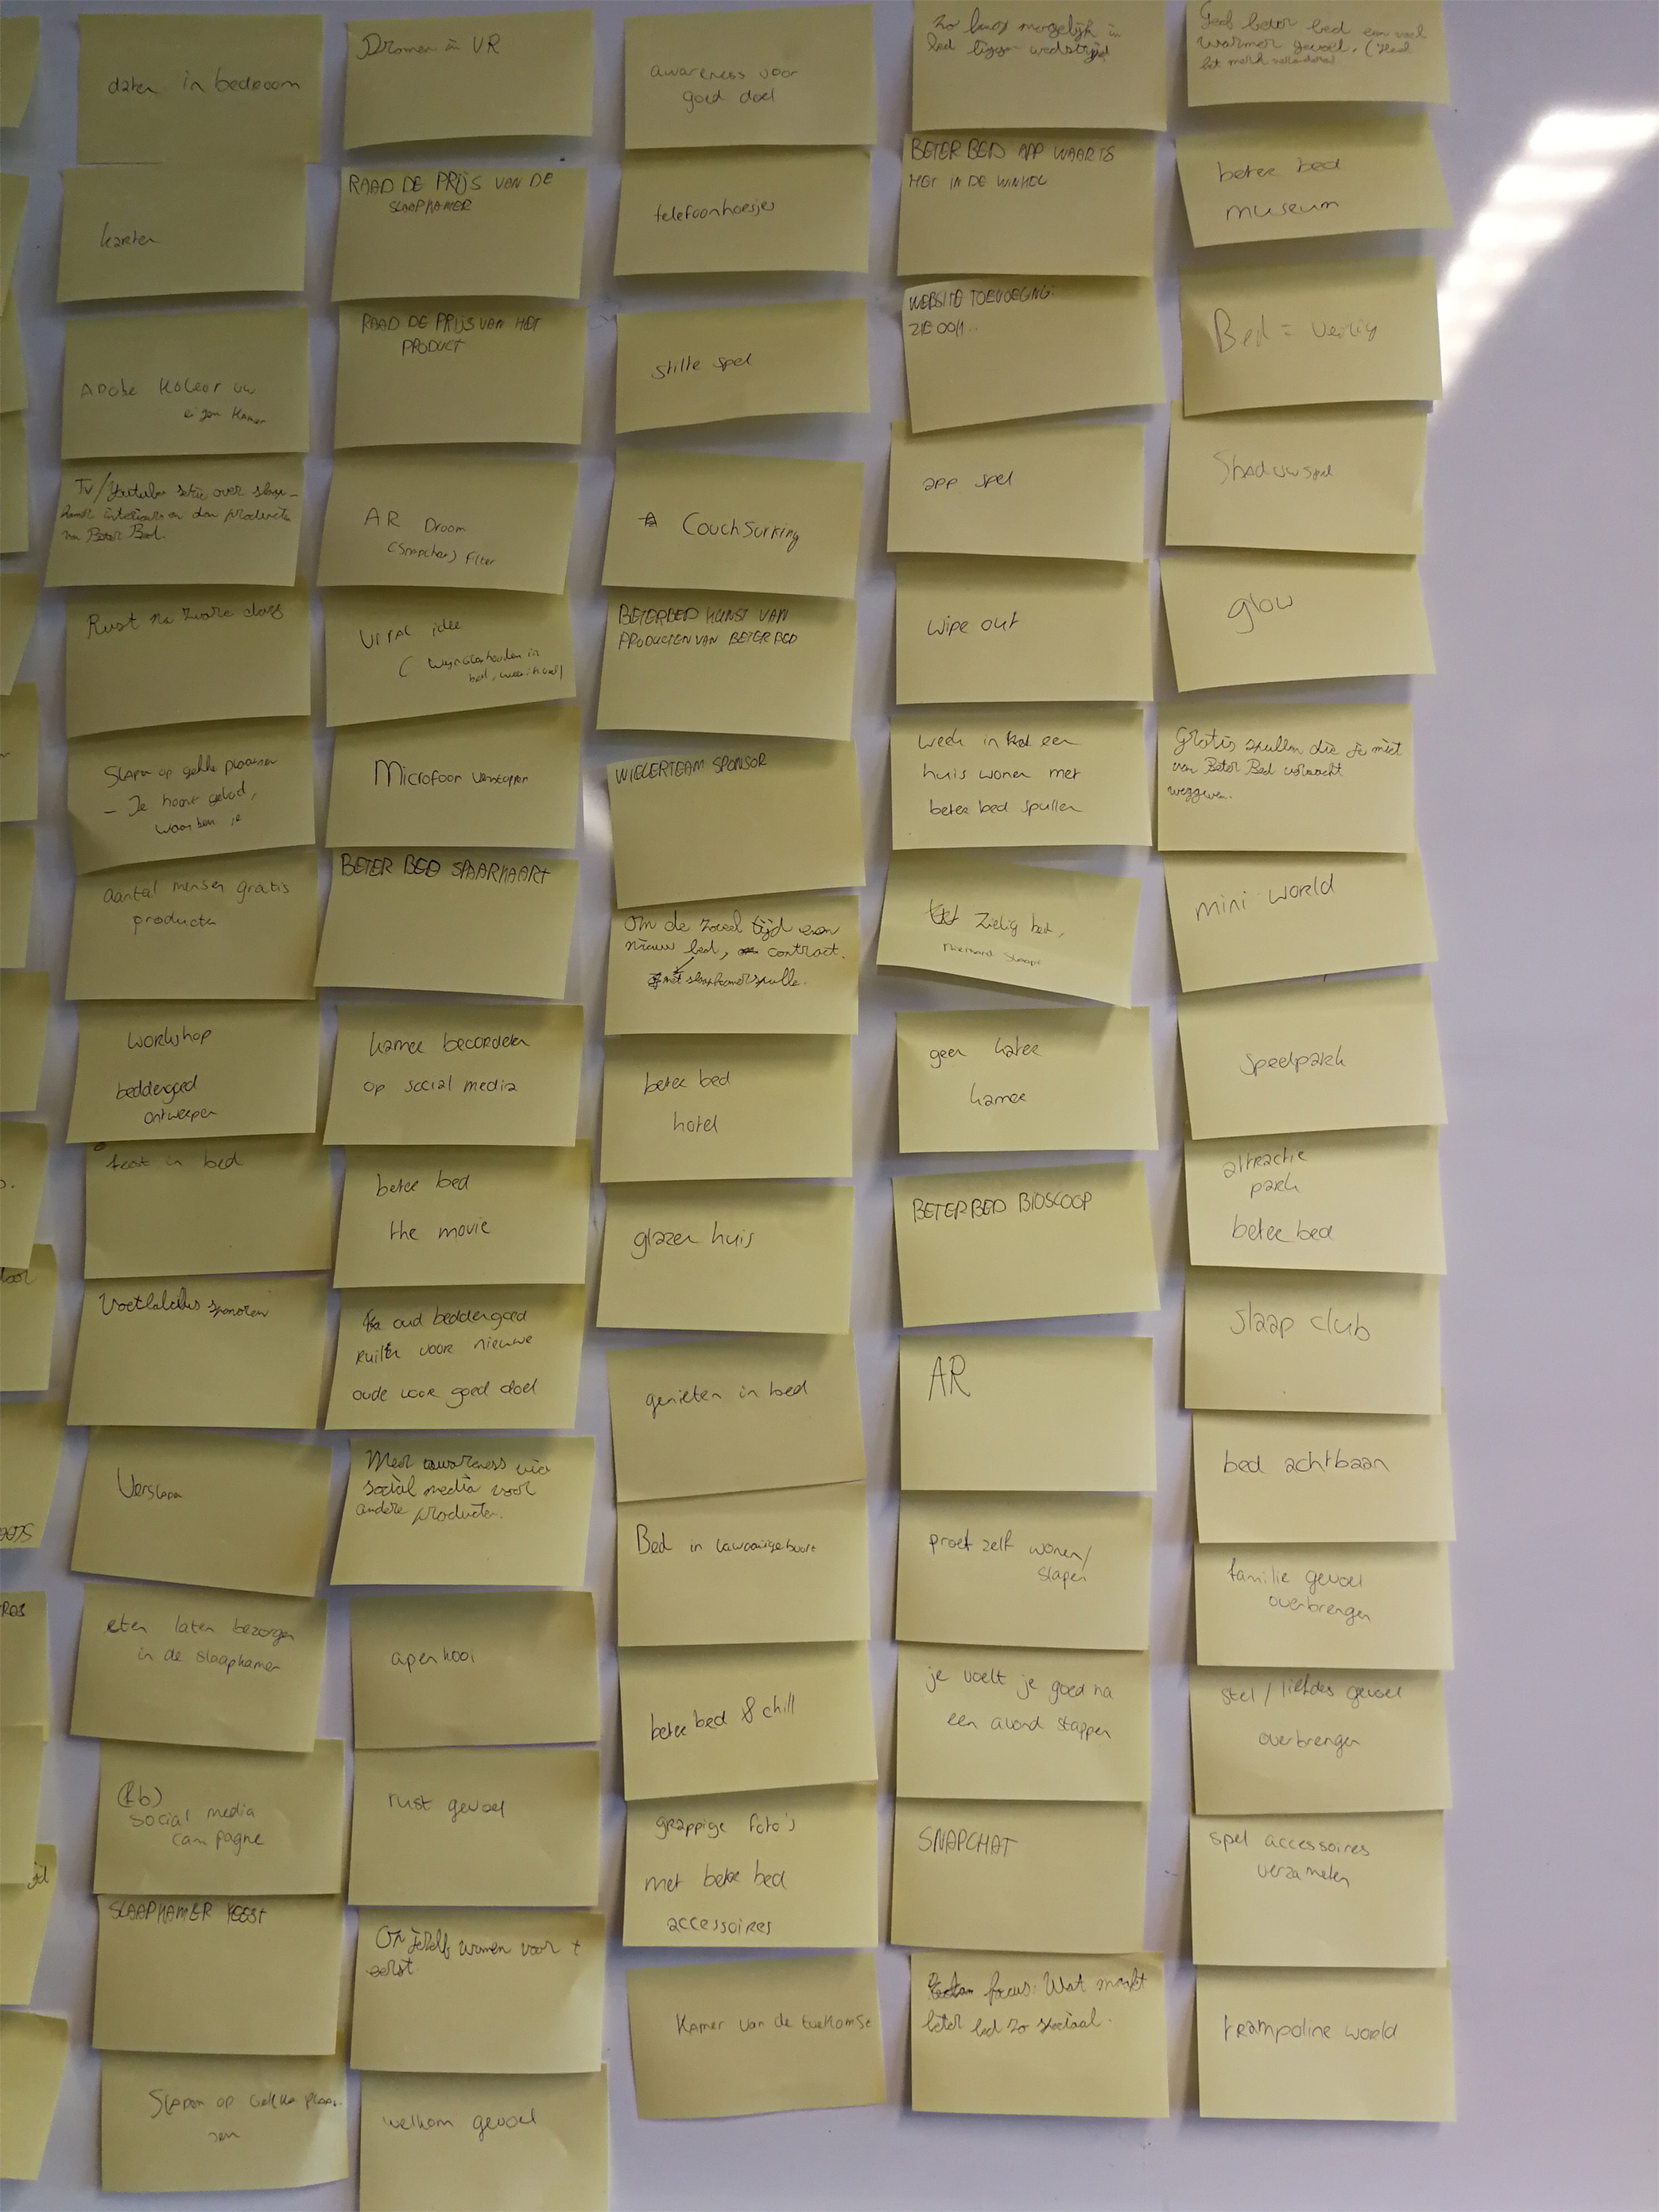 daten in bedroom
karten
ADOBE
eigen kamer
TV/Youtube serie over slaap-
kamer interieurs en dan producten
van Beter Bed.
Rust na zware dag
Slapen op gekke plaatsen
- Je hoort geluid,
waar ben je
aantal mensen gratis
producten
workshop
beddengoed
ontwerpen
feest in bed
Voetbalclub sponsoren
Verslapen
eten laten bezorgen
in de slaapkamer
(fb)
social media
campagne
SLAAPKAMER FEEST
Slapen op gekke plaat-
sen
Dromen in VR
RAAD DE PRIJS VAN DE
SLAAPKAMER
RAAD DE PRIJS VAN HET
PRODUCT
AR Droom
(Snapchat) Filter
Viral idee
( Wijnglas houden in
bed,
Microfoon verstoppen
BETER BED SPAARKAART
kamer beoordelen
op social media
beter bed
the movie
oud beddengoed
ruilen voor nieuwe
oude voor goed doel
Meer awareness via
social media voor
andere producten.
apenkooi
rust gevoel
Op jezelf wonen voor t
eerst.
welkom gevoel
awareness voor
goed doel
telefoonhoesjes
stilte spel
Couchsurfing
BETERBED KUNST VAN
PRODUCTEN VAN BETER BED
WIELERTEAM SPONSOR
Om de zoveel tijd een
nieuw bed, contract.
met slaapkamerspullen.
beter bed
hotel
glazen huis
genieten in bed
Bed in lawaaiige buurt
beter bed & chill
grappige foto's
met beter bed
accessoires
Kamer van de toekomst
Zo lang mogelijk in
bed liggen wedstrijd
BETER BED APP WAAR IS
HET IN DE WINKEL
WEBSITE TOEVOEGING:
ZIE OOK..
app spel
wipe out
week in een
huis wonen met
beter bed spullen
Zielig bed,
niemand slaapt
geen kater
kamer
BETERBED BIOSCOOP
AR
proef zelf wonen/
slapen
je voelt je goed na
een avond stappen
SNAPCHAT
focus: Wat maakt
beter bed zo speciaal.
Geef beter bed een veel
warmer gevoel. (Heel
het merk veranderen
beter bed
museum
Bed = veilig
Shaduwspel
glow
Gratis spullen die je niet
van Beter Bed verwacht
weggeven.
mini world
speelpark
attractie
park
beter bed
slaap club
bed achtbaan
familie gevoel
overbrengen
stel / liefdes gevoel
overbrengen
spel accessoires
verzamelen
trampoline world